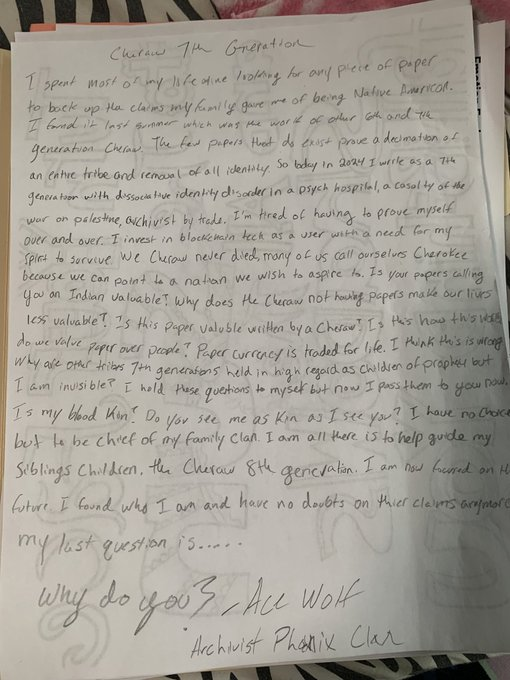 Cheraw 7th Generation
I spent most of my life time looking for any piece of paper
to back up the claims my family gave me of being Native American.
I found it last summer which was the work of other 6th and 7th
generation Cheraw. The few papers that do exist prove a decimation of
an entire tribe and removal of all identity. So today in 2024 I write as a 7th
generation with dissociative identity disorder in a psych hospital, a casolty of the
war on palestine, archivist by trade. I'm tired of having to prove myself
over and over. I invest in blockchain tech as a user with a need for my
spirit to survive. We Cheraw never died, many of us call ourselves Cherokee
because we can point to a nation we wish to aspire to. Is your papers calling
you an Indian valuable? Why does the Cheraw not having papers make our lives
less valuable? Is this paper valuble written by a Cheraw? Is this how this works
do we value paper over people? Paper currency is traded for life. I think this is wrong.
Why are other tribes 7th generations held in high regard as children of prophecy but
I am invisible? I hold these questions to myself but now I pass them to you now.
Is my blood kin? Do you see me as kin as I see you? I have no choice
but to be chief of my family clan. I am all there is to help guide my
siblings children, the Cheraw 8th generation. I am now focused on th
future. I found who I am and have no doubts on thier claims anymore
my last question is.....
Why do you? - Ace Wolf
Archivist Phenix Clan